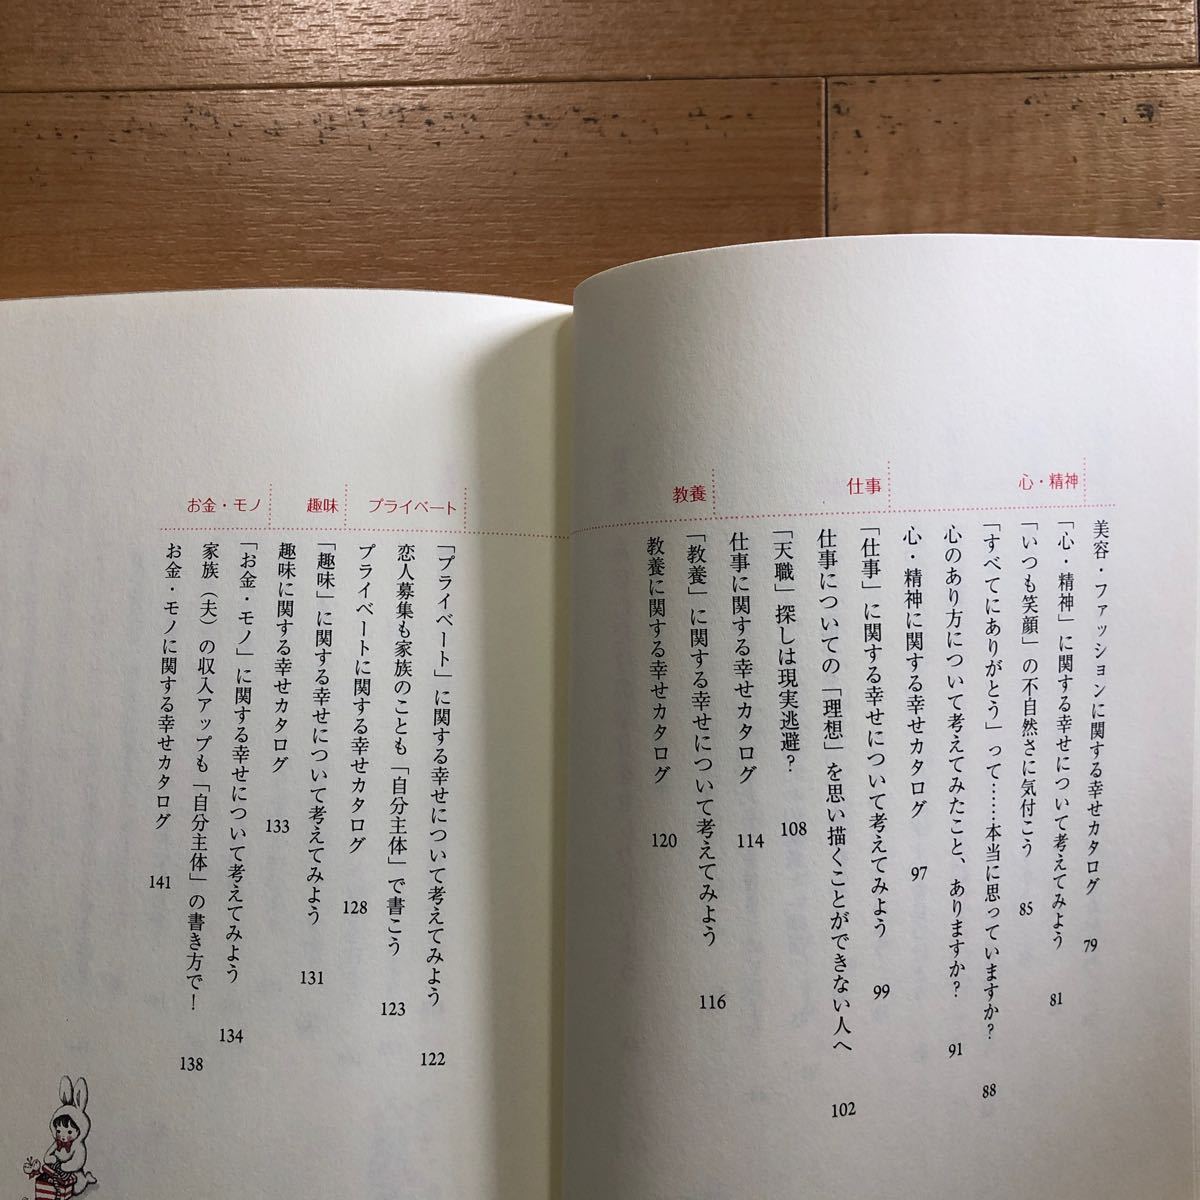 美容・ファッションに関する幸せカタログ 79
心・精神
「心・精神」に関する幸せについて考えてみよう 81
「いつも笑顔」の不自然さに気付こう 85
「すべてにありがとう」って……本当に思っていますか？ 88
心のあり方について考えてみたこと、ありますか？ 91
心・精神に関する幸せカタログ 97
仕事
「仕事」に関する幸せについて考えてみよう 99
仕事についての「理想」を思い描くことができない人へ 102
「天職」探しは現実逃避？ 108
仕事に関する幸せカタログ 114
教養
「教養」に関する幸せについて考えてみよう 116
教養に関する幸せカタログ 120
プライベート
「プライベート」に関する幸せについて考えてみよう 122
恋人募集も家族のことも「自分主体」で書こう 123
プライベートに関する幸せカタログ 128
趣味
「趣味」に関する幸せについて考えてみよう 131
趣味に関する幸せカタログ 133
お金・モノ
「お金・モノ」に関する幸せについて考えてみよう 134
家族（夫）の収入アップも「自分主体」の書き方で！ 138
お金・モノに関する幸せカタログ 141